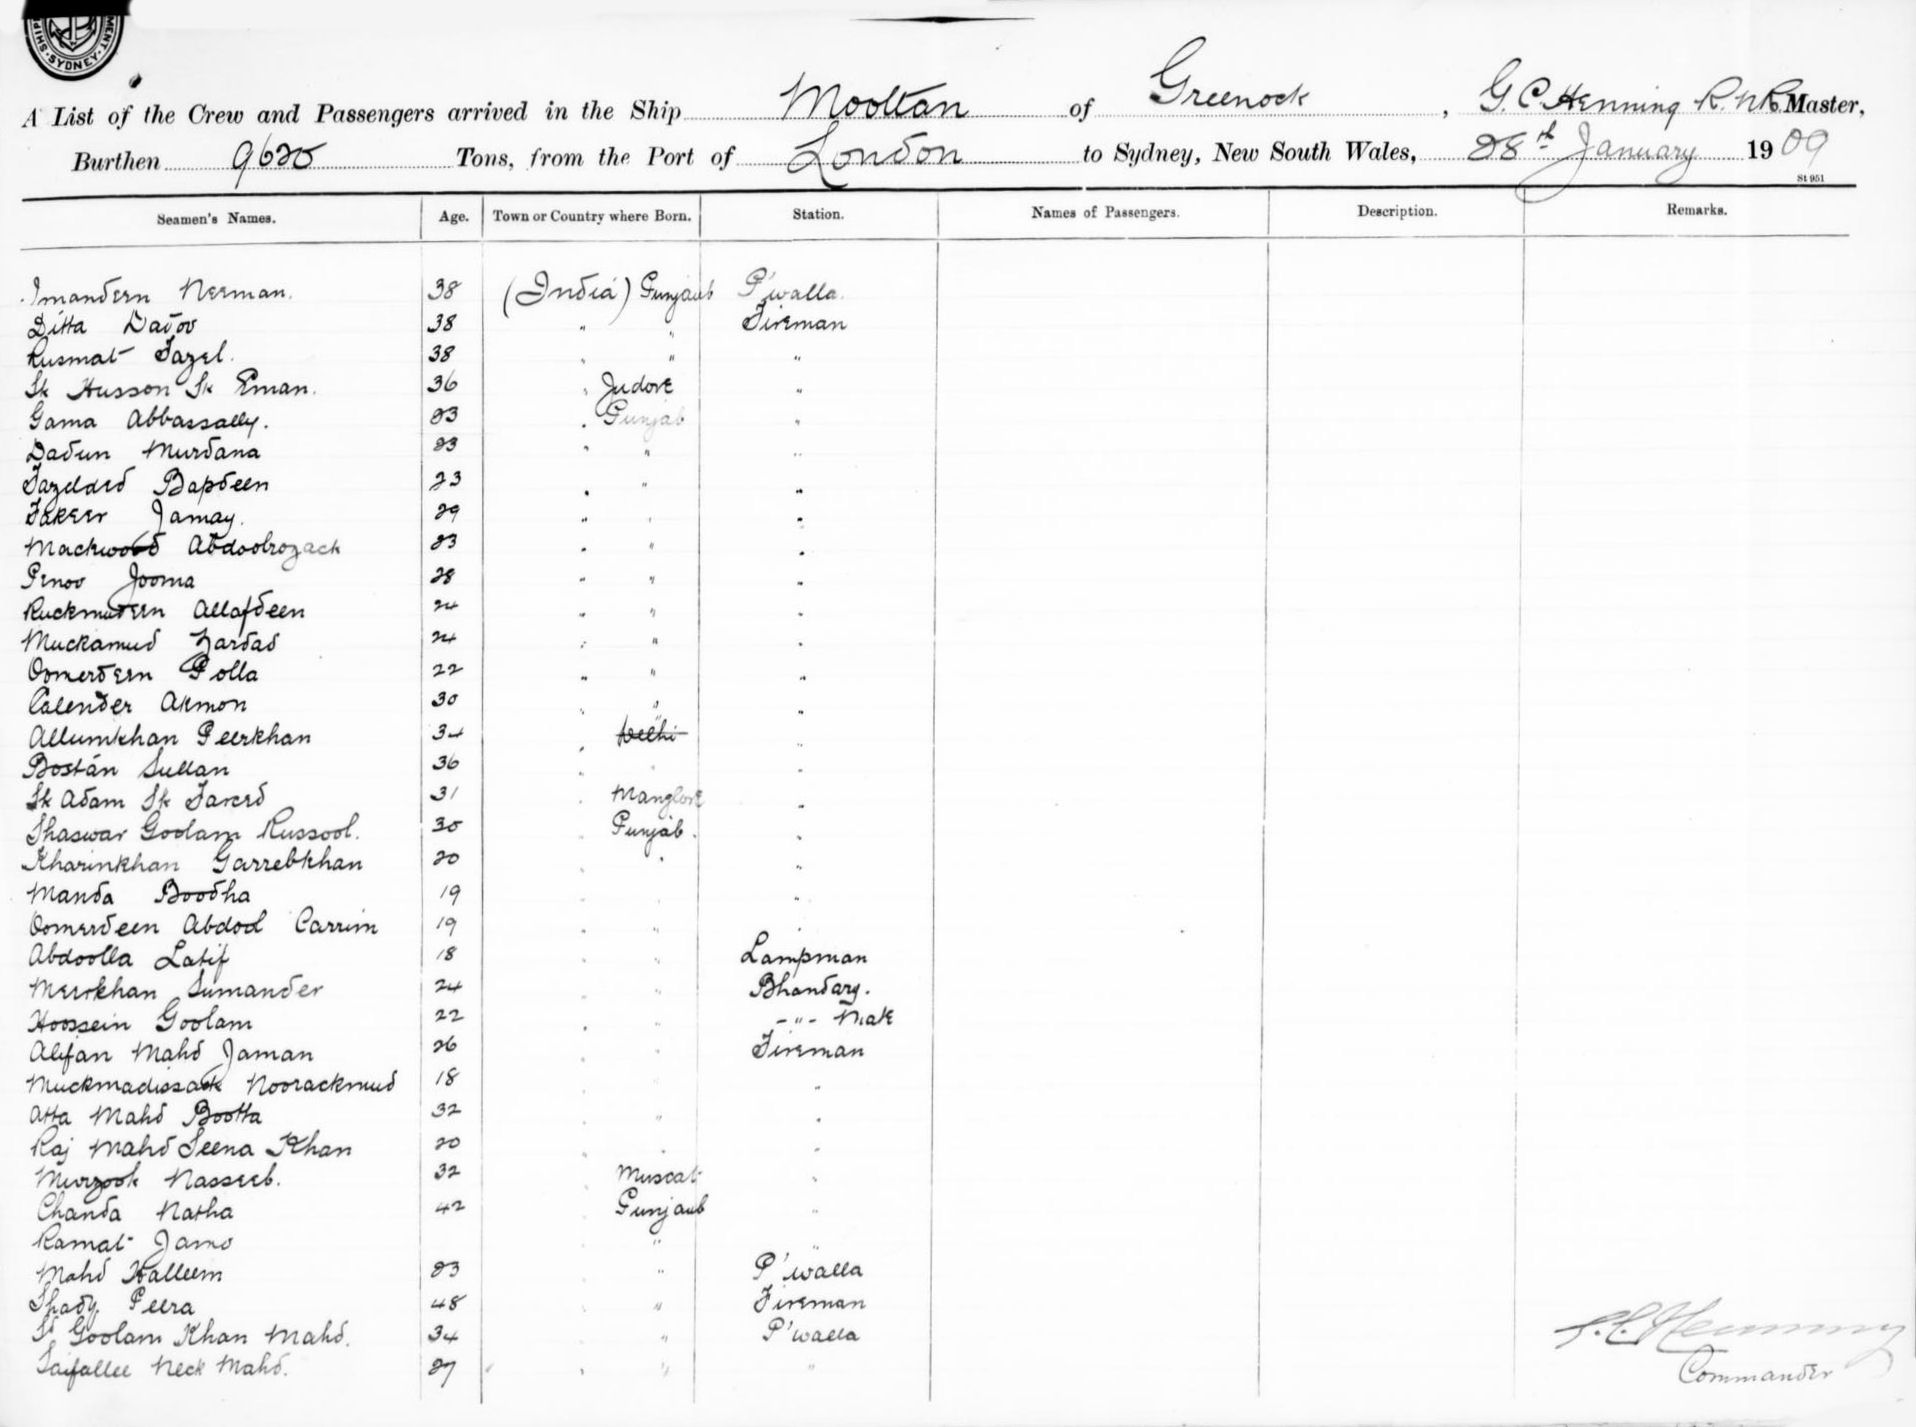 SHIP MENT · SYDNEY ·
A List of the Crew and Passengers arrived in the Ship Mooltan of Greenock, G. C. Henning R.N.R. Master,
Burthen 9620 Tons, from the Port of London to Sydney, New South Wales, 28th January 1909
St 951
Seamen's Names. Age. Town or Country where Born. Station. Names of Passengers. Description. Remarks.
Imandeen Neeman. 38 (India) Punjaub P'walla.
Ditta Dadoo 38 " " Fireman
Rusmat Fazel. 38 " " "
Sk Husson Sk Eman. 36 " Judore "
Gama Abbassally. 23 " Punjab "
Dadun Murdana 23 " " "
Fazeldad Bapdeen 23 " " "
Fakeer Jamay. 29 " " "
Mackwood Abdoolrozack 23 " " "
Penoo Jooma 28 " " "
Ruckmudeen Allafdeen 24 " " "
Muckamud Zardad 24 " " "
Oomerdeen Golla 22 " " "
Calender Akmon 30 " " "
Allumkhan Peerkhan 34 " Delhi "
Bostan Sultan 36 " " "
Sk Adam Sk Fareed 31 " Manglore "
Shaswar Goolam Russool. 30 " Punjab. "
Kharinkhan Garrebkhan 20 " " "
Manda Boodha 19 " " "
Oomerdeen Abdool Carrim 19 " " "
Abdoolla Latif 18 " " Lampman
Meerkhan Sumander 24 " " Bhandary.
Hoossein Goolam 22 " " - " - Mate
Alifan Mahd Jaman 26 " " Fireman
Muckmadissack Noorackmud 18 " " "
Atta Mahd Bootta 32 " " "
Raj Mahd Seena Khan 20 " " "
Murzook Nasseeb. 32 " Muscat "
Chanda Natha 42 " Punjaub "
Ramat Jamo " " "
Mahd Kalleem 23 " " P'walla
Shady Peera 48 " " Fireman
Sd Goolam Khan Mahd. 34 " " P'walla
Saifallee Neck Mahd. 27 " " "
G. C. Henning
Commander